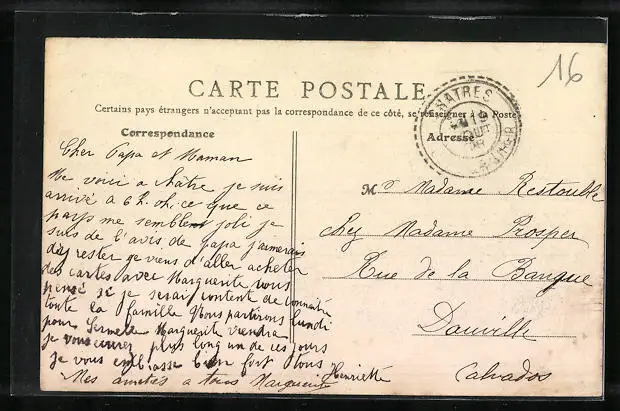 16
CARTE POSTALE
Certains pays étrangers n'acceptant pas la correspondance de ce côté, se renseigner à la Poste
Correspondance
Adresse
Cher Papa et Maman
Me voici a Nâtre je suis
arrivé à 6 h. oh. ce que ce
pays me semblent joli je
suis de l'avis de papa j'aimerais
d'y rester je viens d'aller acheter
des cartes avec Marguerite vous
pensé si je serais content de connaître
toute la famille Nous partirons lundi
pour Marguerite viendra
je vous ecrirez plus long un de ces jours
je vous embrasse bien fort tous
Henriette
Mes amitiés a tous Marguerite
M Madame Restoulble
chez Madame Prosper
Rue de la Banque
Dauville
Calvados